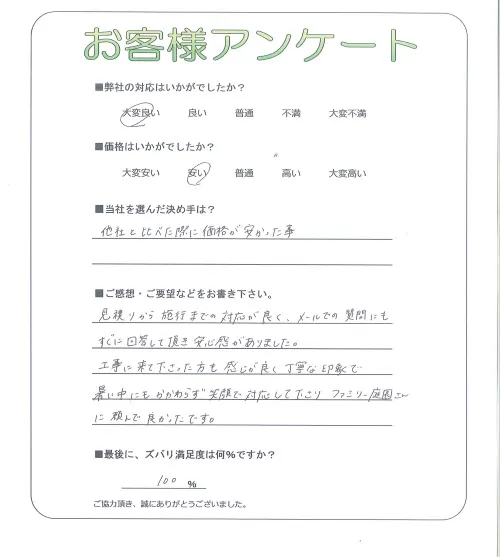 お客様アンケート
■弊社の対応はいかがでしたか?
大変良い 良い 普通 不満 大変不満
■価格はいかがでしたか?
大変安い 安い 普通 高い 大変高い
■当社を選んだ決め手は?
他社と比べた際に価格が安かった事
■ご感想・ご要望などをお書き下さい。
見積りから施行までの対応が良く、メールでの質問にも
すぐに回答して頂き安心感がありました。
工事に来て下さった方も感じが良く丁寧な印象で
暑い中にもかかわらず笑顔で対応して下さり ファミリー庭園さん
に頼んで良かったです。
■最後に、ズバリ満足度は何%ですか?
100 %
ご協力頂き、誠にありがとうございました。